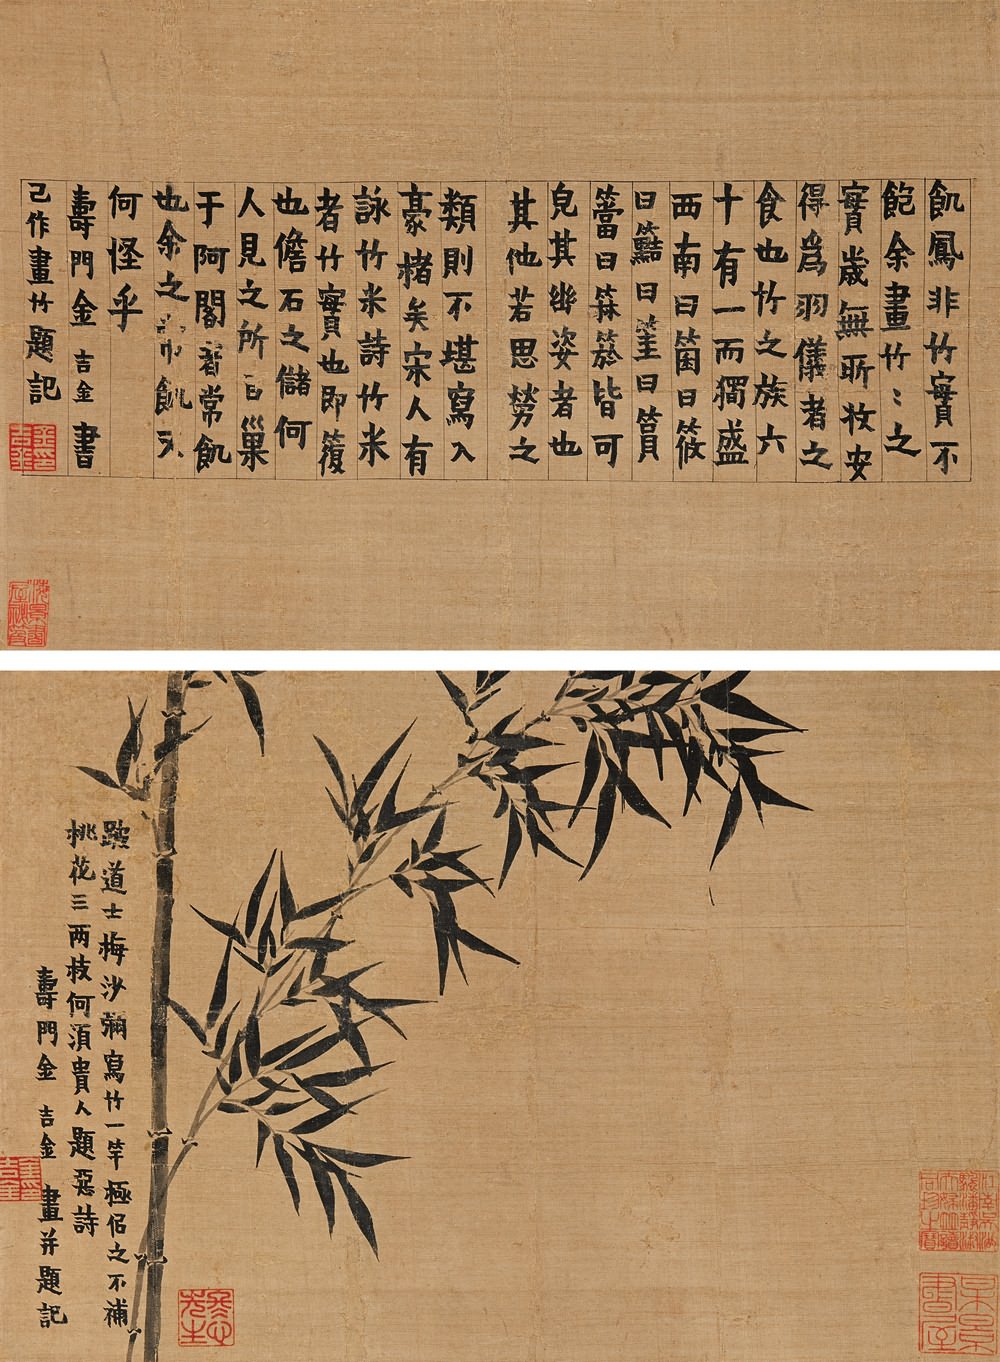 飢鳳非竹實不
飽余畫竹〻之
實歲無所收安
得為羽儀者之
食也竹之族六
十有一而獨盛
西南曰箘曰筱
曰䈏曰筀曰篔
簹曰箖箊皆可
皃其幽姿者也
其他若思簩之
類則不堪寫入
豪楮矣宋人有
詠竹米詩竹米
者竹實也即復
也儋石之儲何
人見之所巢
于阿閣者常飢
也余之飢又
何怪乎
壽門金吉金書
己作畫竹題記
跛道士梅沙彌寫竹一竿極佀之不補
桃花三兩枝何須貴人題惡詩
壽門金吉金畫并題記